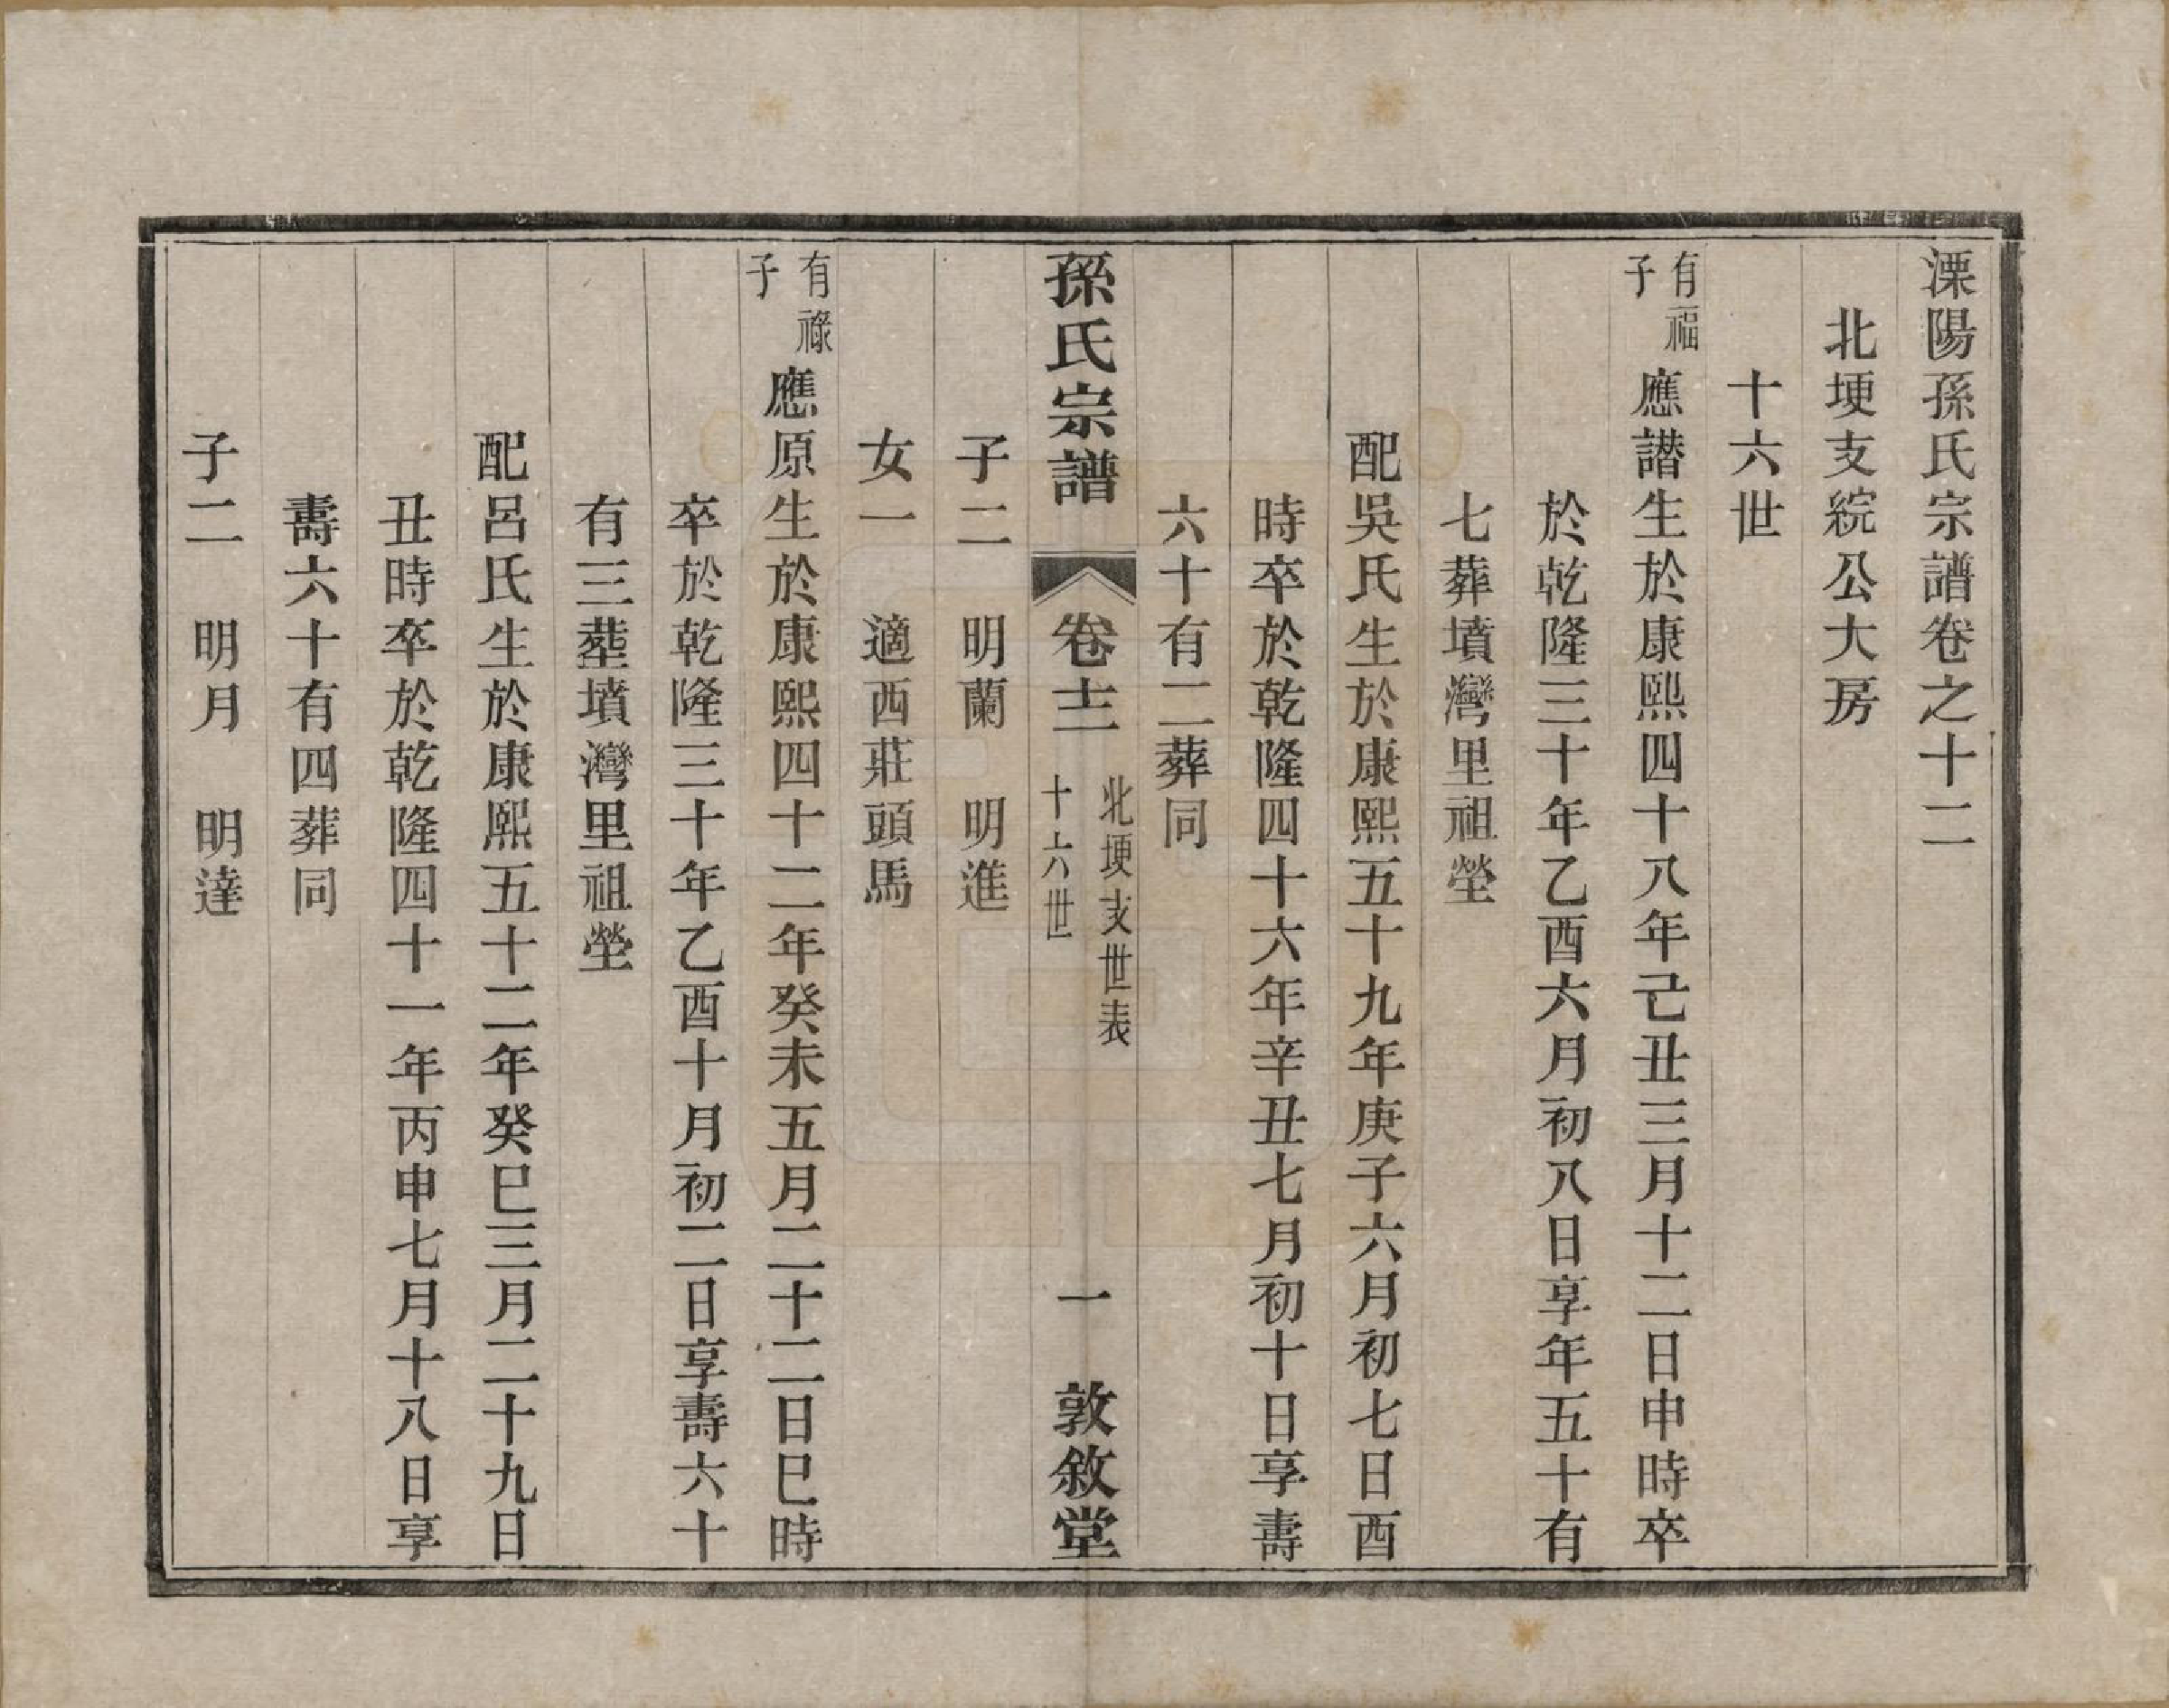 溧陽孫氏宗譜卷之十二
北埂支綂公大房
十六世
有福子
應譛生於康熙四十八年己丑三月十二日申時卒
於乾隆三十年乙酉六月初八日享年五十有
七葬墳灣里祖塋
配吳氏生於康熙五十九年庚子六月初七日酉
時卒於乾隆四十六年辛丑七月初十日享壽
六十有二葬同
孫氏宗譜 卷十二 北埂支世表 十六世 一 敦敘堂
子二 明蘭 明進
女一 適西莊頭馬
有祿子
應原生於康熙四十二年癸未五月二十二日巳時
卒於乾隆三十年乙酉十月初二日享壽六十
有三塟墳灣里祖塋
配呂氏生於康熙五十二年癸巳三月二十九日
丑時卒於乾隆四十一年丙申七月十八日享
壽六十有四葬同
子二 明月 明達